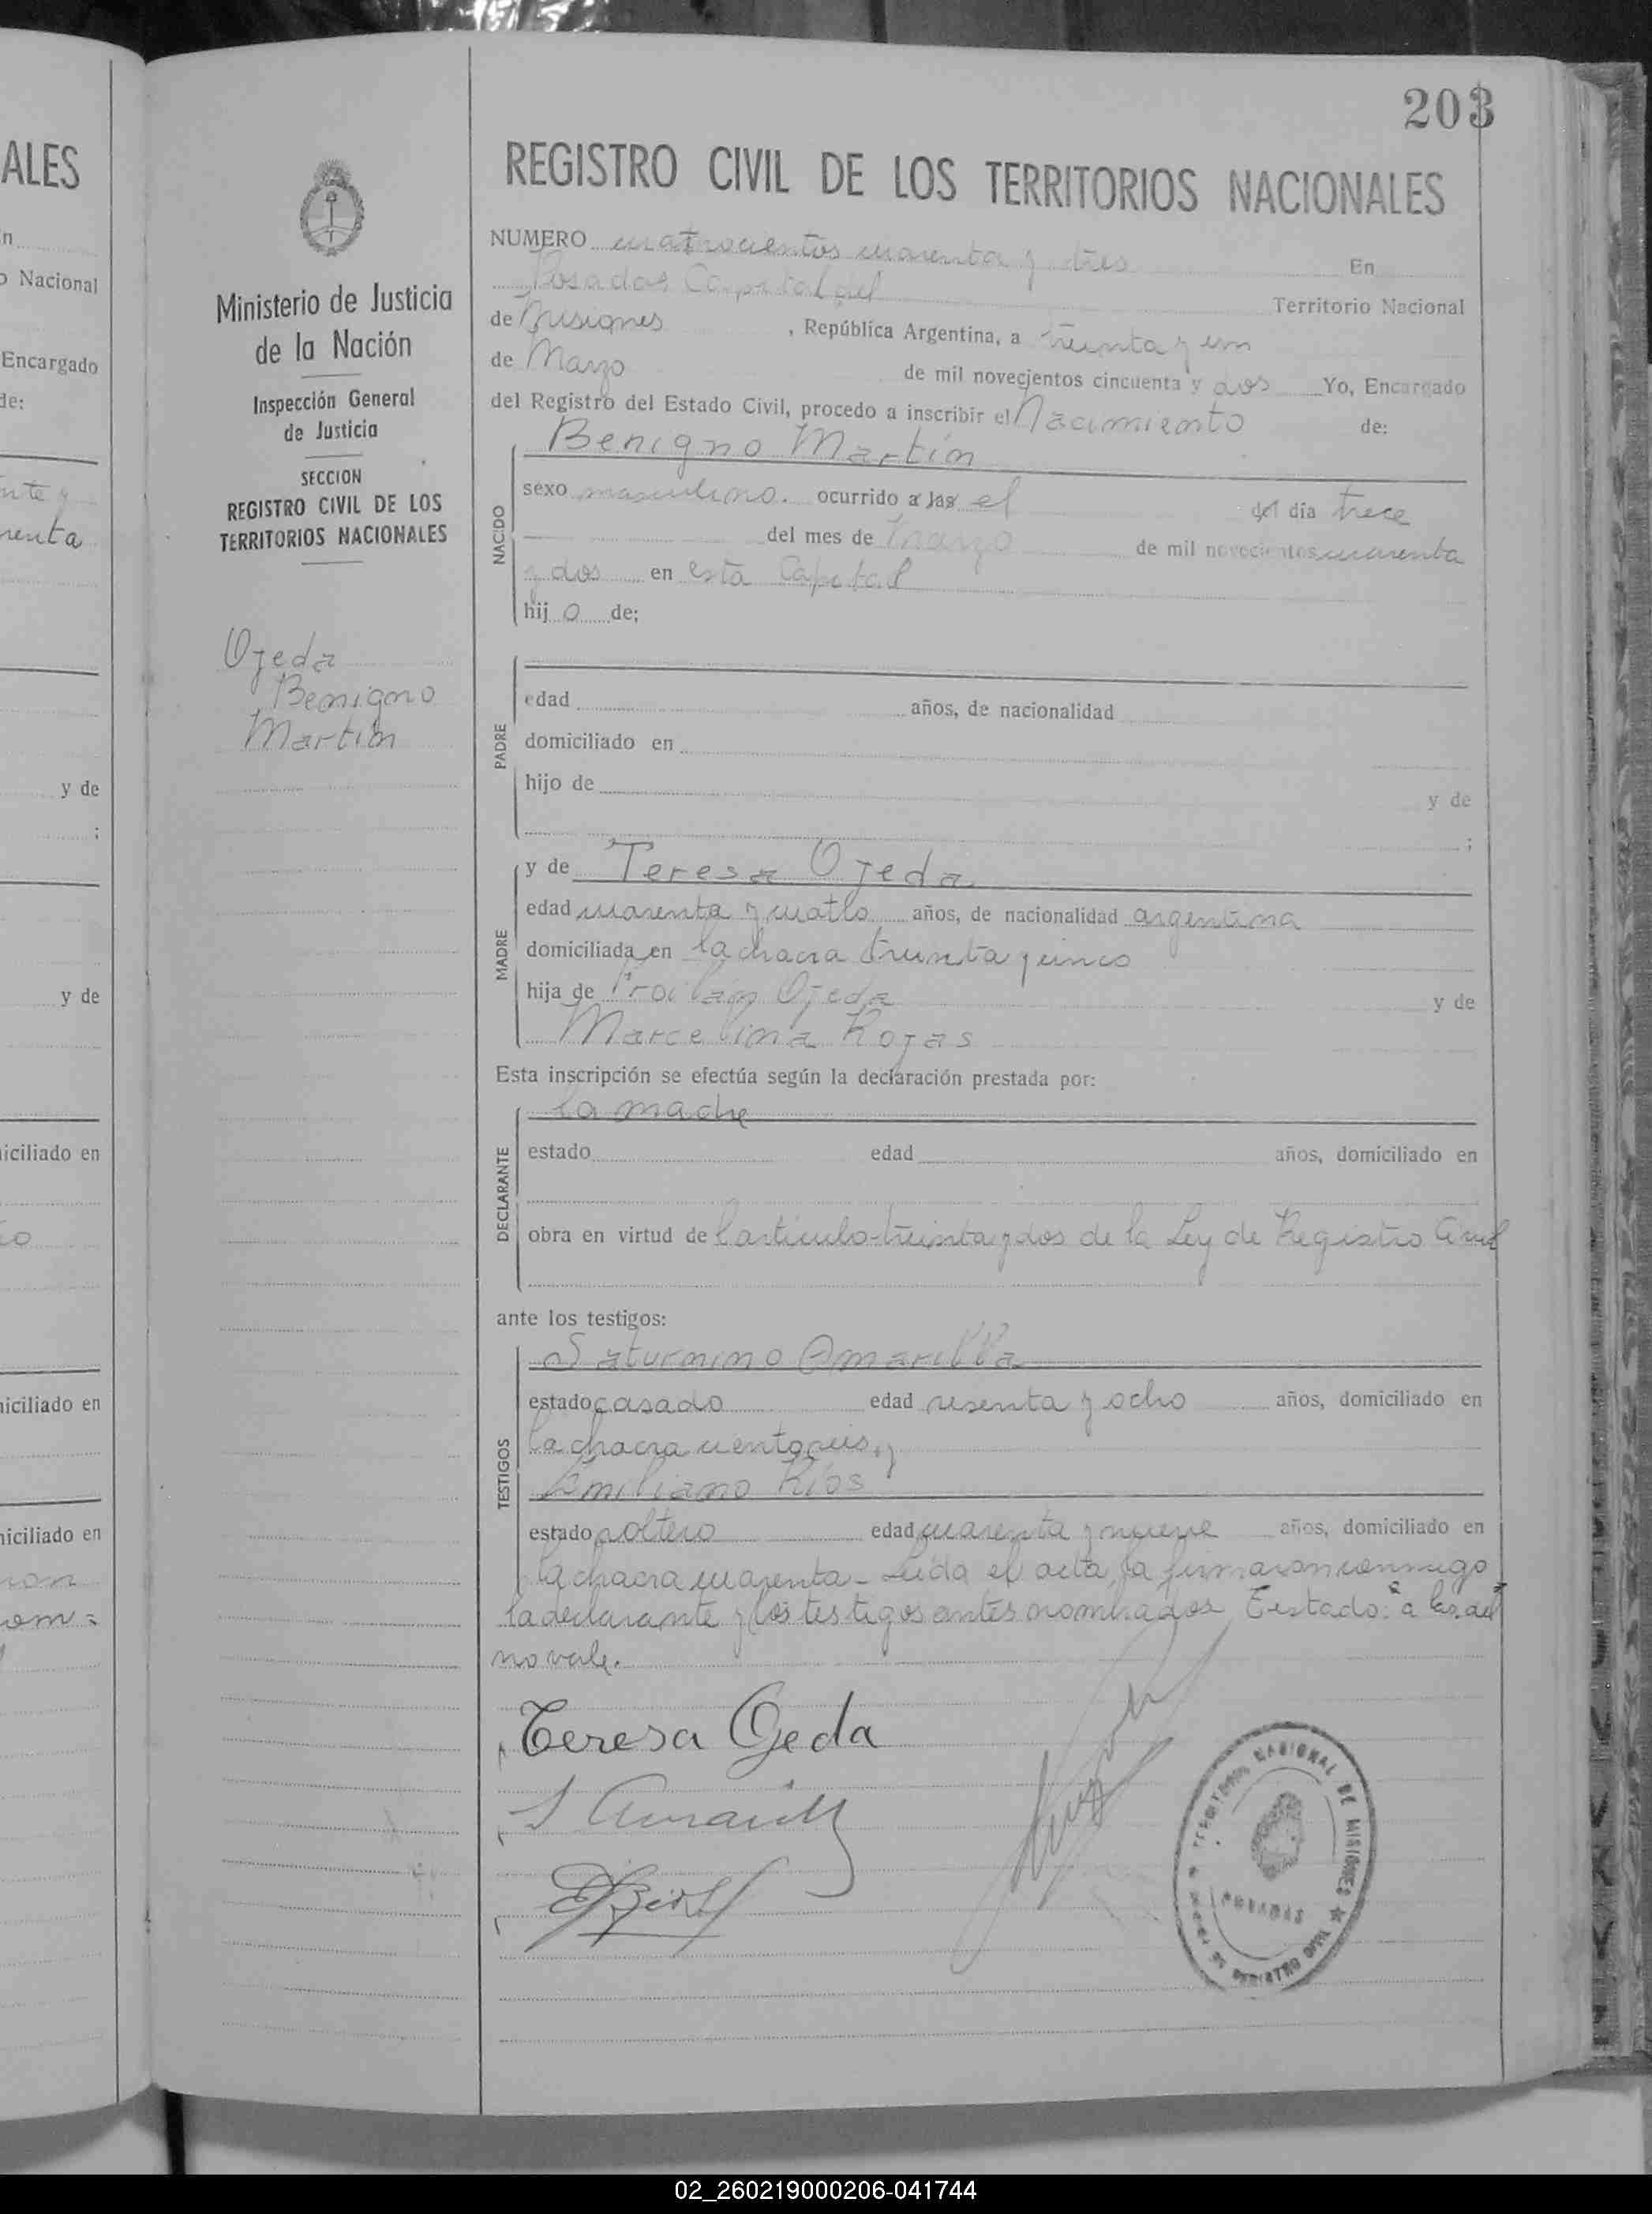 203
ALES
n
o Nacional
Encargado
de:
nte y
renta
y de
;
y de
iciliado en
iciliado en
iciliado en
Ministerio de Justicia
de la Nación
Inspección General
de Justicia
SECCION
REGISTRO CIVIL DE LOS
TERRITORIOS NACIONALES
Ojeda
Benigno
Martín
REGISTRO CIVIL DE LOS TERRITORIOS NACIONALES
NUMERO cuatrocientos cuarenta y tres En
Posadas Capital del Territorio Nacional
de Misiones, República Argentina, a treinta y un
de Marzo de mil novecientos cincuenta y dos Yo, Encargado
del Registro del Estado Civil, procedo a inscribir el Nacimiento de:
Benigno Martín
NACIDO
sexo masculino. ocurrido a las el del día trece
del mes de Marzo de mil novecientos cuarenta
y dos en esta Capital
hijo de;
PADRE
edad años, de nacionalidad
domiciliado en
hijo de y de
;
MADRE
y de Teresa Ojeda
edad cuarenta y cuatro años, de nacionalidad argentina
domiciliada en la chacra treinta y cinco
hija de Froilán Ojeda y de
Marcelina Rojas
Esta inscripción se efectúa según la declaración prestada por:
DECLARANTE
la madre
estado edad años, domiciliado en
obra en virtud de l artículo treinta y dos de la Ley de Registro Civil
ante los testigos:
TESTIGOS
Saturnino Amarilla
estado casado edad sesenta y ocho años, domiciliado en
la chacra ciento seis, y
Emiliano Ríos
estado soltero edad cuarenta y nueve años, domiciliado en
la chacra cuarenta - Leída el acta, la firmaron conmigo
la declarante y los testigos antes nombrados. Testado: "a las, del"
no vale.
Teresa Ojeda
S Amarilla
E Rios
TERRITORIO NACIONAL DE MISIONES
POSADAS
REGISTRO CIVIL
02_260219000206-041744